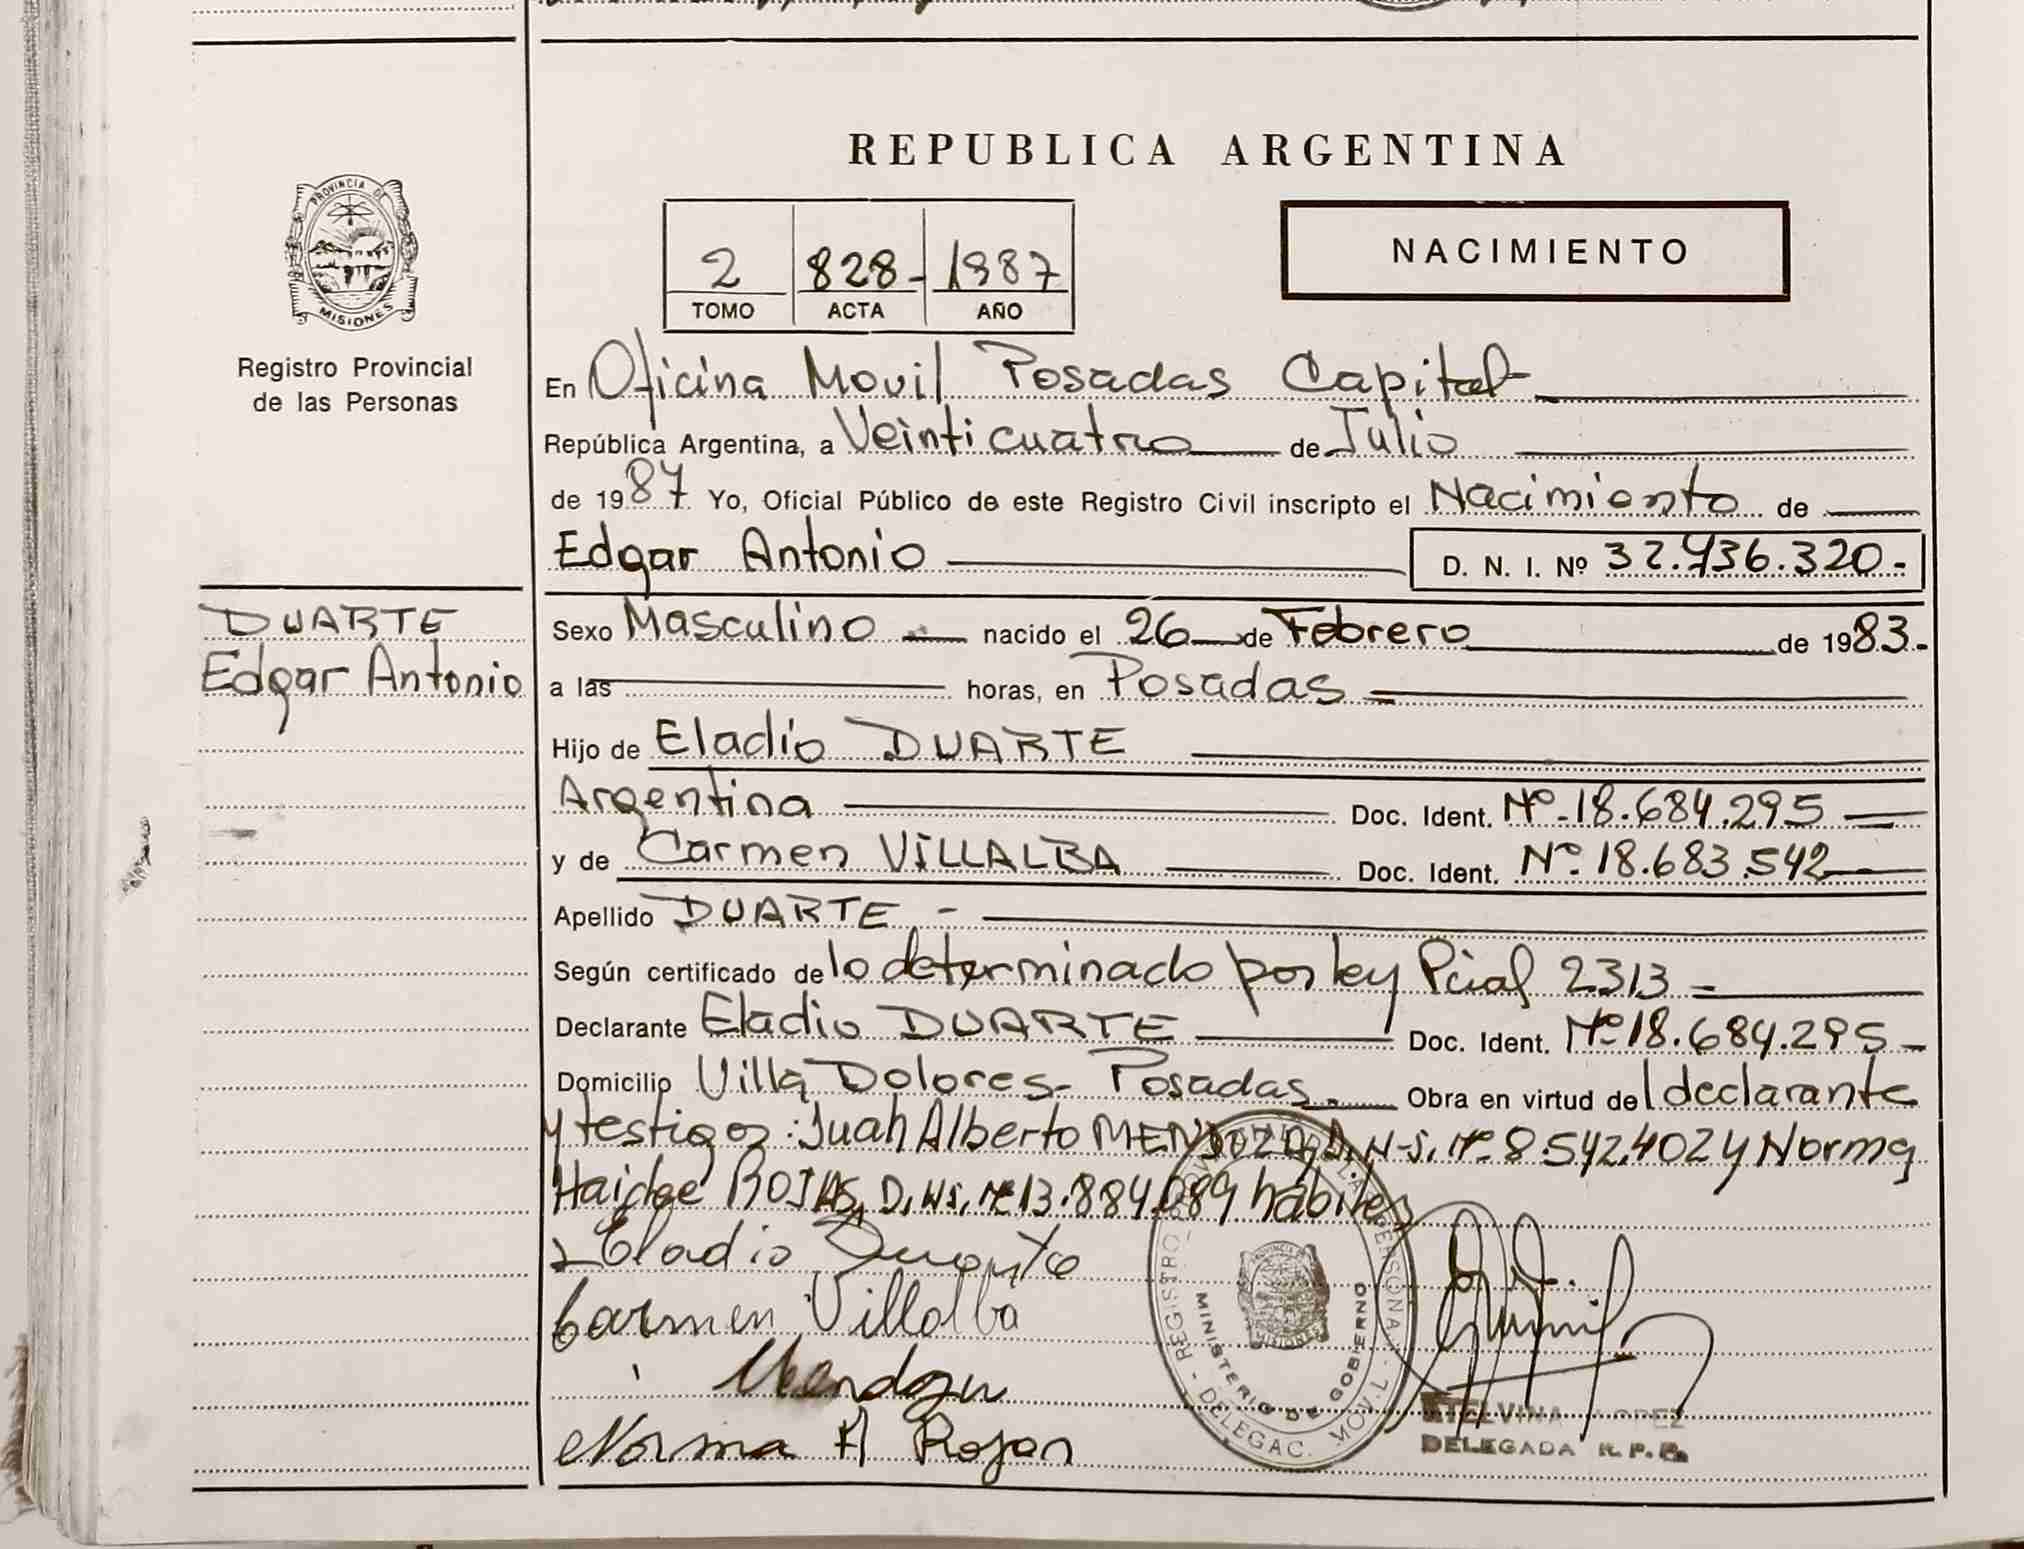 REPUBLICA ARGENTINA
PROVINCIA DE
MISIONES
Registro Provincial
de las Personas
2 828- 1987
TOMO ACTA AÑO
NACIMIENTO
En Oficina Movil Posadas Capital
República Argentina, a Veinticuatro de Julio
de 1987 Yo, Oficial Público de este Registro Civil inscripto el Nacimiento de
Edgar Antonio D. N. I. Nº 32.436.320.-
DUARTE
Edgar Antonio
Sexo Masculino nacido el 26 de Febrero de 1983.-
a las horas, en Posadas
Hijo de Eladio DUARTE
Argentina Doc. Ident. Nº.18.684.295
y de Carmen VILLALBA Doc. Ident. Nº.18.683.542
Apellido DUARTE -
Según certificado de lo determinado por ley Pcial 2313
Declarante Eladio DUARTE Doc. Ident. Nº18.684.295
Domicilio Villa Dolores- Posadas. Obra en virtud del declarante
y testigos: Juan Alberto MENDOZA, D.N.I. Nº 8.542.402 y Norma
Haidee ROJAS, D.N.I. Nº 13.884.089 hábiles
Eladio Duarte
Carmen Villalba
Mendoza
Norma H Rojas
REGISTRO PROVINCIAL DE LAS PERSONAS - DELEGAC. MOVIL
MINISTERIO DE GOBIERNO
PROVINCIA DE
MISIONES
ETELVINA LOPEZ
DELEGADA R. P. P.